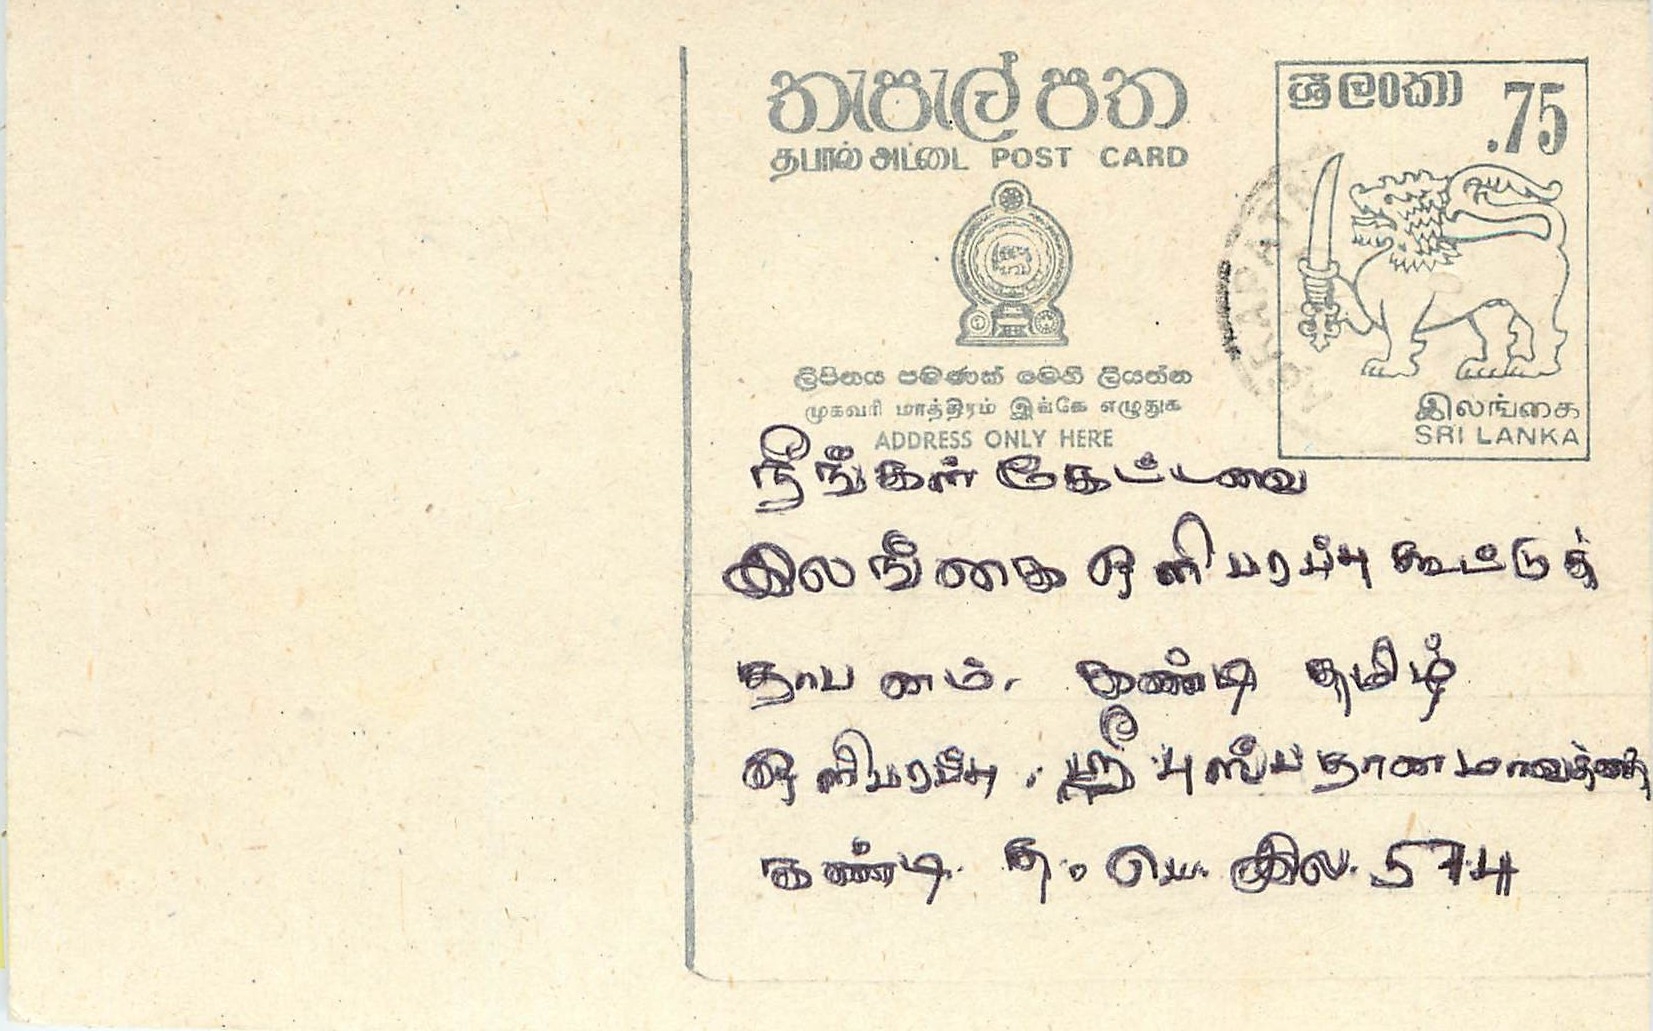 තැපැල් පත
தபால் அட்டை POST CARD
ශ්‍රී ලංකා .75
ලිපිනය පමණක් මෙහි ලියන්න
முகவரி மாத்திரம் இங்கே எழுதுக
ADDRESS ONLY HERE
இலங்கை
SRI LANKA
நீங்கள் கேட்டவை
இலங்கை ஒளிபரப்பு கூட்டுத்
தாபனம். கண்டி தமிழ்
ஒளிபரப்பு. ஸ்ரீ புஸ்பதானமாவத்தை
கண்டி த. பெ. இல. 574